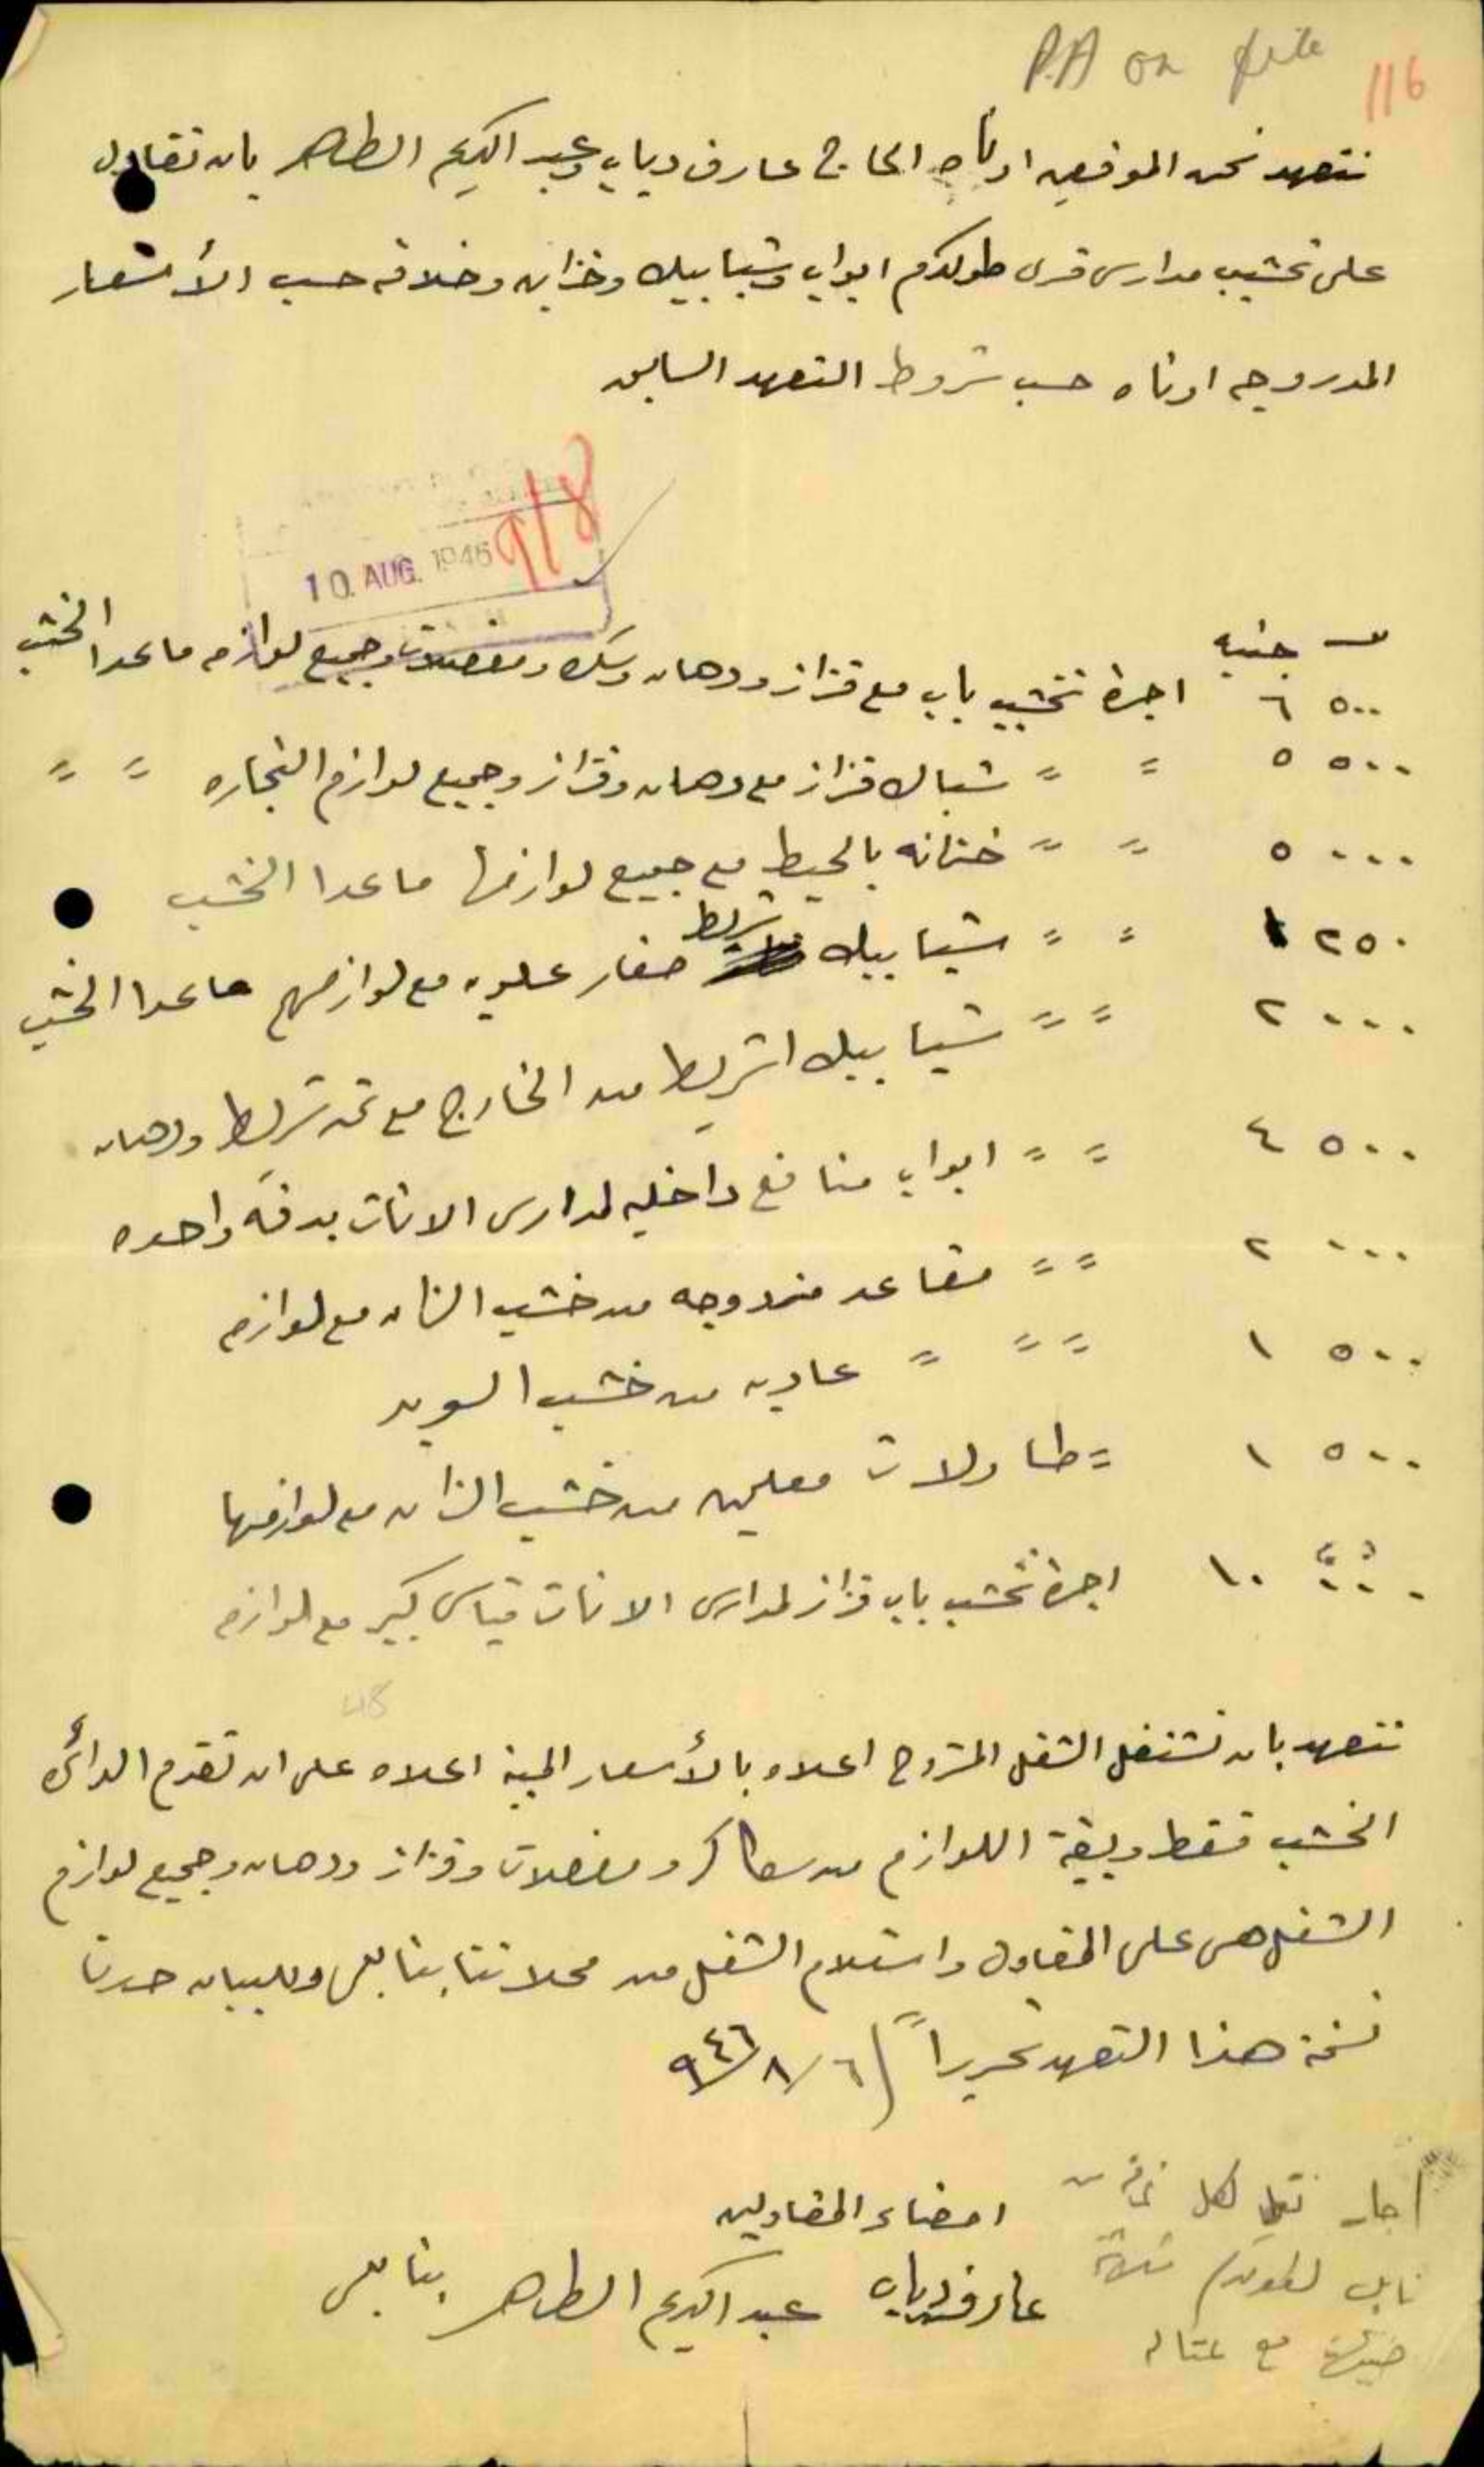 P.A on file
116
نتعهد نحن الموقعين ادناه الحاج عارف دياب وعبد الكريم الطاهر بان نقاول
على تخشيب مدارس قرى طولكرم ابواب وشبابيك وخزاين وخلافه حسب الأسعار
المدروجه ادناه حسب شروط التعهد السابق
9/8
10. AUG. 1946
جنيه
٥٠٠ ٦ اجرة تخشيب باب مع قزاز ودهان وسكره ومفصلات وجميع لوازمه ماعدا الخشب
٥٠٠ ٥ = = شباك قزاز مع دهان وقزاز وجميع لوازم النجاره = =
٠٠٠ ٥ = = خزانه بالحيط مع جميع لوازمها ماعدا الخشب
٢٥٠ ١ = = شبابيك شريط صغار علويه مع لوازمهم ماعدا الخشب
٠٠٠ ٢ = = شبابيك اشريط من الخارج مع ثمن شريط ودهان
٥٠٠ ٤ = = ابواب منافع داخليه لمدارس الاناث بدفه واحده
٠٠٠ ٢ = = مقاعد مزدوجه من خشب الزان مع لوازمه
٥٠٠ ١ = = = عاديه من خشب السويد
٥٠٠ ١ = طاولات معلمين من خشب الزان مع لوازمها
٠٠٠ ١٠ اجرة تخشيب باب قزاز لمدارس الاناث قياس كبير مع لوازمه
نتعهد بان نشتغل الشغل المشروح اعلاه بالأسعار المبينة اعلاه على ان تقدم الدائرة
الخشب فقط وبقية اللوازم من سكاكر ومفصلات وقزاز ودهان وجميع لوازم
الشغل هي على المقاول واستلام الشغل من محلاتنا بنابلس وللبيان حررنا
نسخة هذا التعهد تحريراً ٦/٨/٩٤٦
امضاء المقاولين
عارف دياب عبد الكريم الطاهر بنابلس
اجار نقل لكل
نابلس لطولكرم ثلاثة
مع عتاله